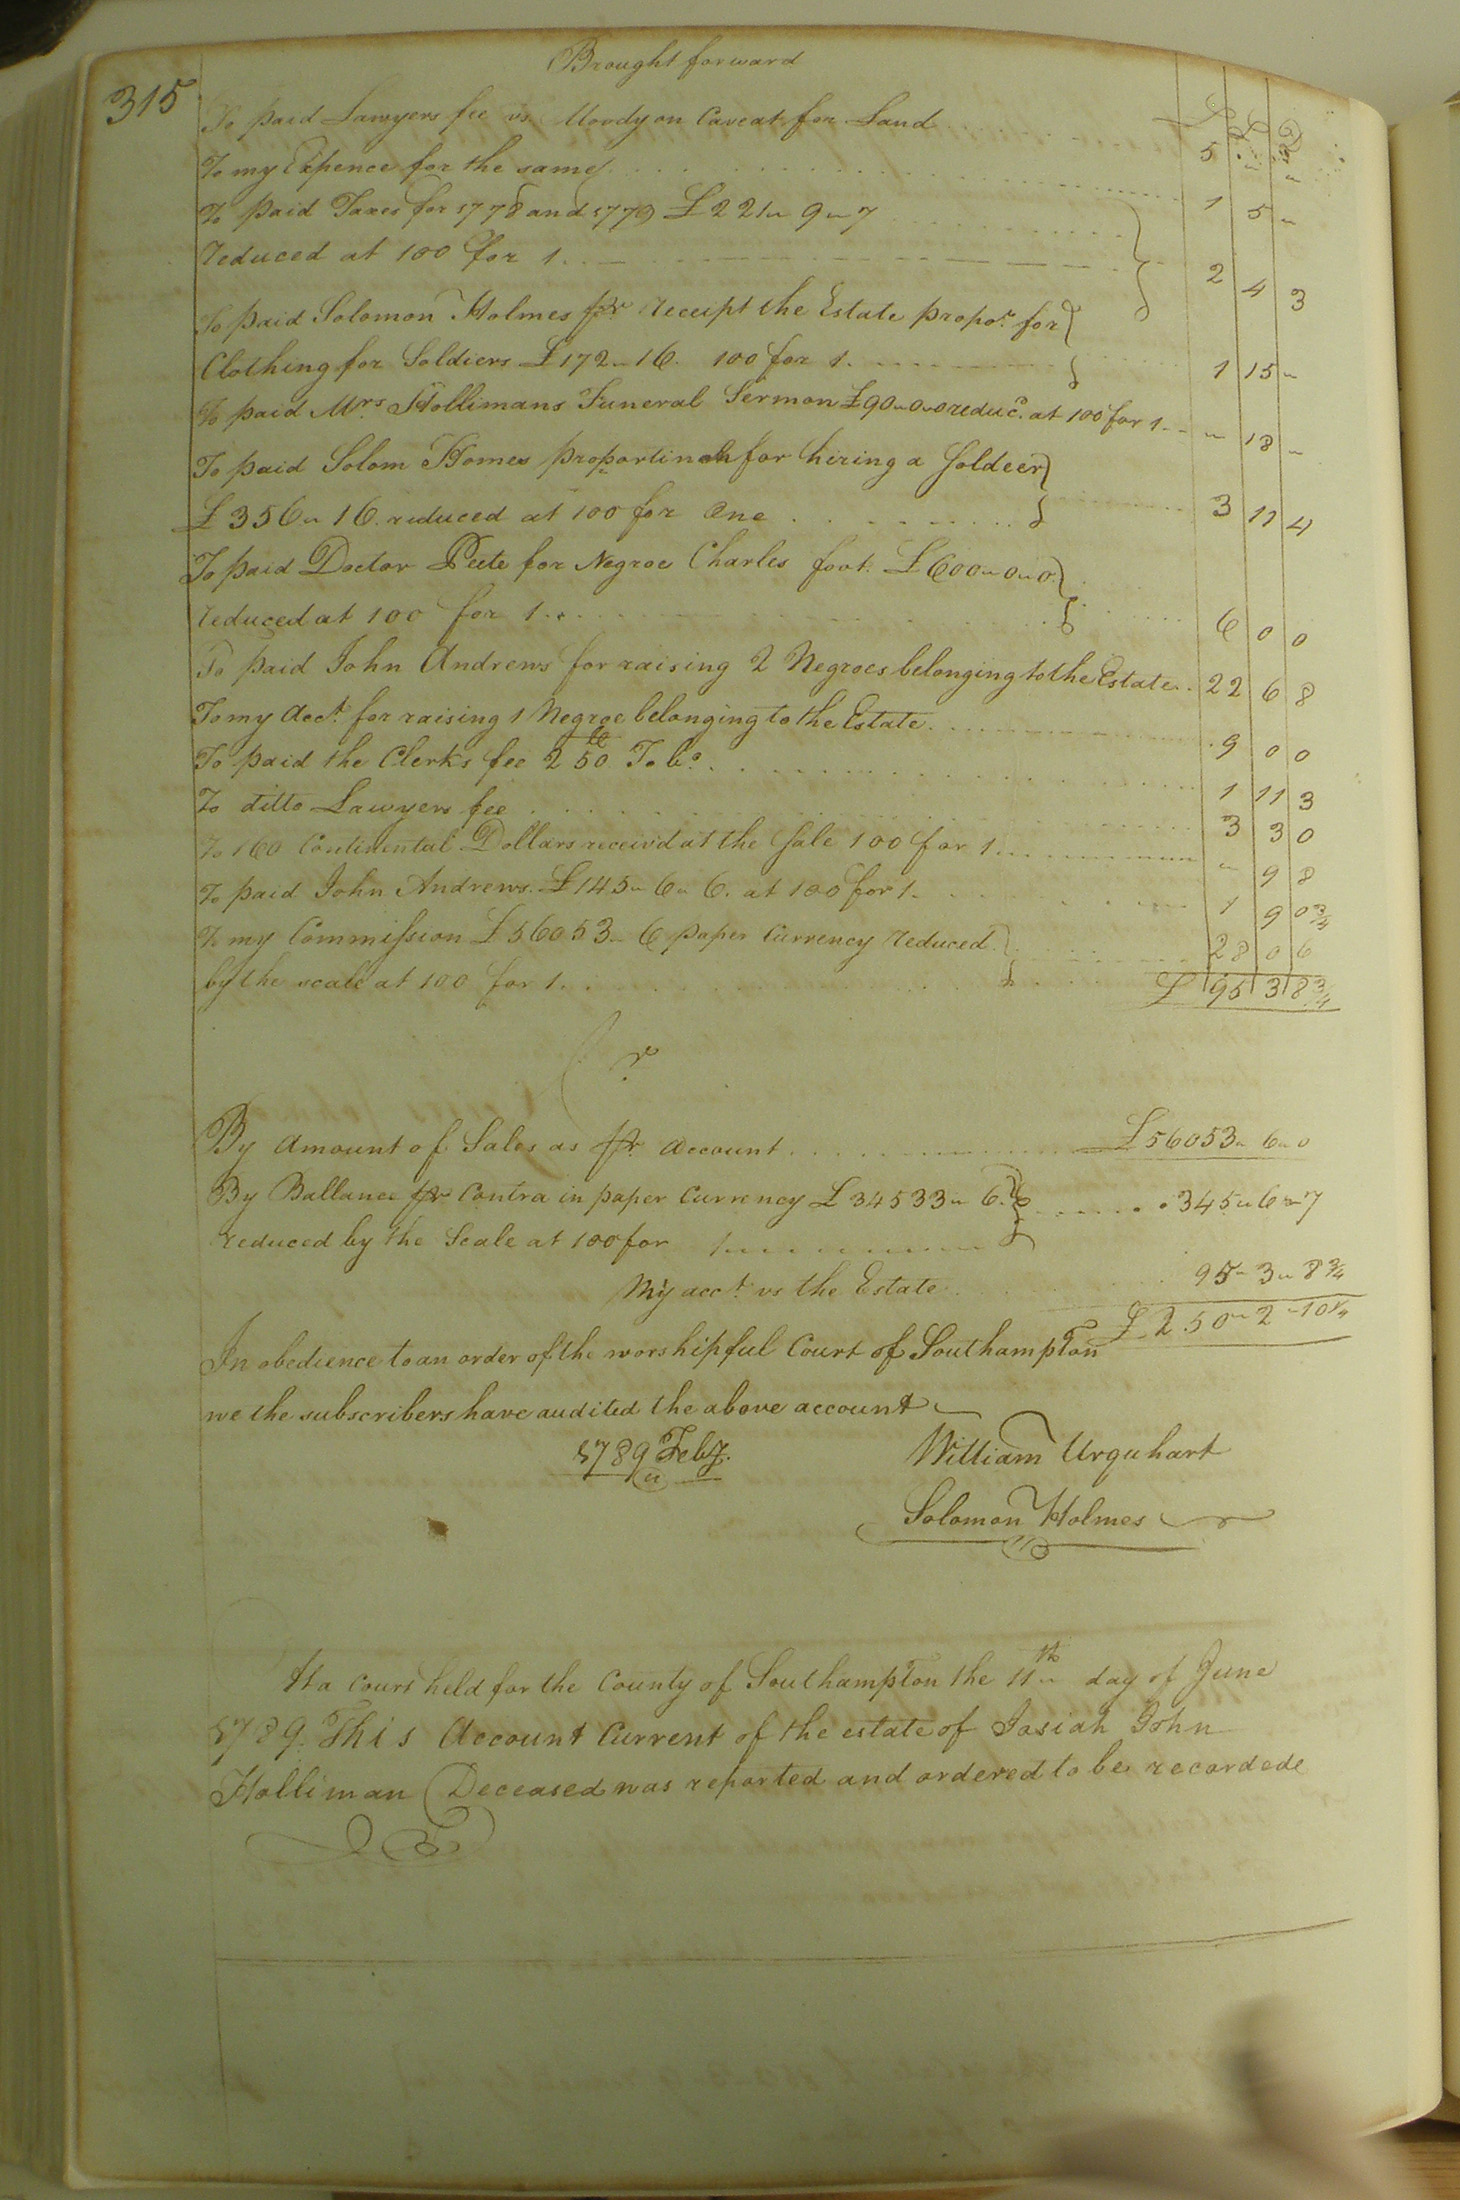 315
Brought forward
£ S D
To paid Lawyers fee vs Mordyon Caveat for Land 5 " "
To my Expence for the same 1 5 "
To paid Taxes for 1778 and 1779 £221 " 9 " 7
reduced at 100 for 1 2 4 3
To paid Solomon Holmes pr receipt the Estate propor for
Clothing for Soldiers £172 " 16. 100 for 1. 1 15 "
To paid Mrs Hollimans Funeral Sermon £90 " 0 " 0 reduc'd. at 100 for 1 " 18 "
To paid Solom Homes proportinah for hiring a Soldeer
£356 " 16. reduced at 100 for One 3 11 4
To paid Doctor Peete for Negroe Charles foot. £600 " 0 " 0
reduced at 100 for 1 6 0 0
To paid John Andrews for raising 2 Negroes belonging to the Estate 22 6 8
To my acct. for raising 1 Negroe belonging to the Estate 9 0 0
To paid the Clerks fee 250 lb Tobo. 1 11 3
To ditto Lawyers fee 3 3 0
To 160 Continental Dollars receiv'd at the Sale 100 for 1 " 9 8
To paid John Andrews. £145 " 6 " 6. at 100 for 1. 1 9 0¾
To my Commission £56053 " 6 paper Currency reduced
by the scale at 100 for 1. 28 0 6
£ 95 3 8¾
Cr
By Amount of Sales as pr. account £56053 " 6 " 0
By Ballance pr Contra in paper Currency £34533 " 6.
reduced by the Scale at 100 for 1 345 " 6 " 7
My acct. vs the Estate 95 " 3 " 8¾
£250 " 2 " 10¼
In obedience to an order of the worshipful Court of Southampton
we the subscribers have audited the above account
1789 Feby.
William Urquhart
Solomon Holmes
At a Court held for the County of Southampton the 11th day of June
1789. This Account Current of the estate of Josiah John
Holliman Deceased was reported and ordered to be recordede